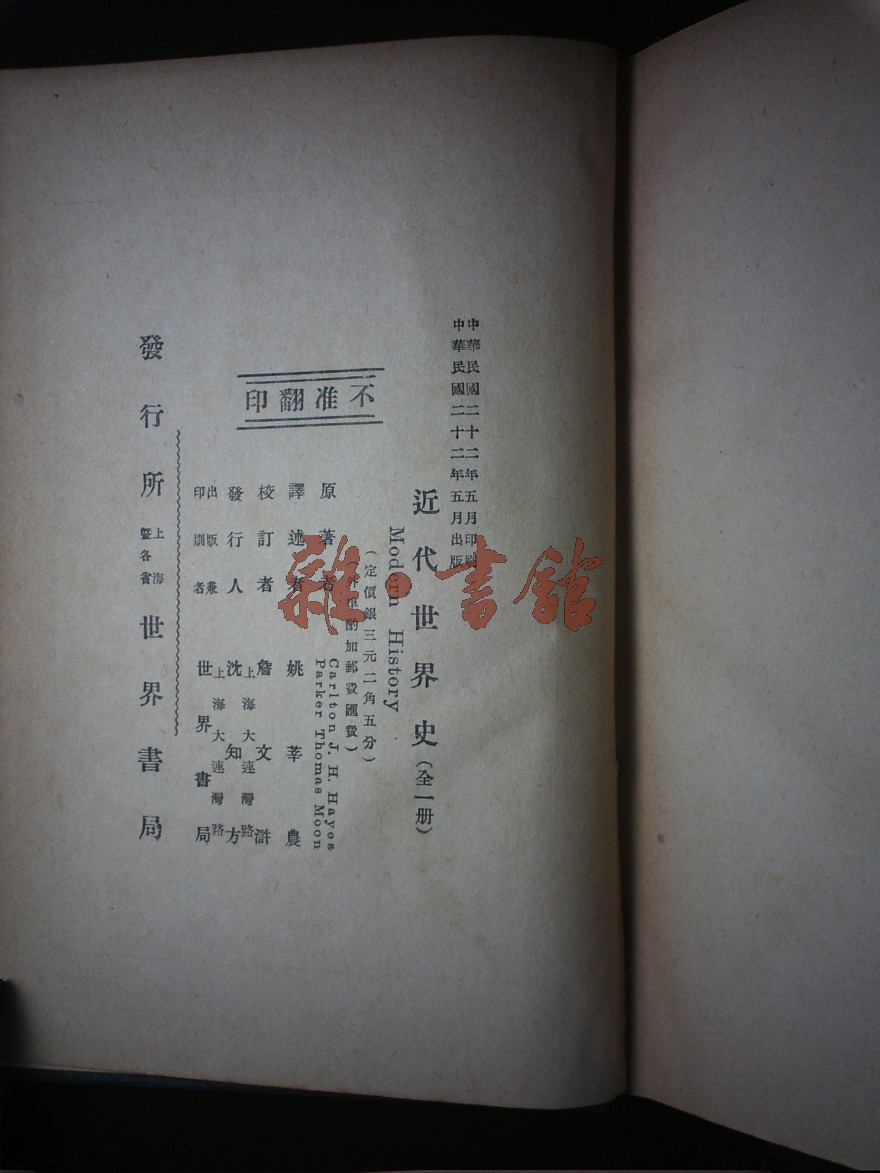 中華民國二十二年五月印刷
中華民國二十二年五月出版
近代世界史（全一册）
Modern History
（定價銀三元二角五分）
（外埠酌加郵費匯費）
不准翻印
原著者 Carlton J. H. Hayes
Parker Thomas Moon
譯述者 姚莘農
校訂者 詹文滸
發行人 沈知方
上海大連灣路
出版兼印刷者 世界書局
上海大連灣路
發行所 上海暨各省 世界書局
雜·書館